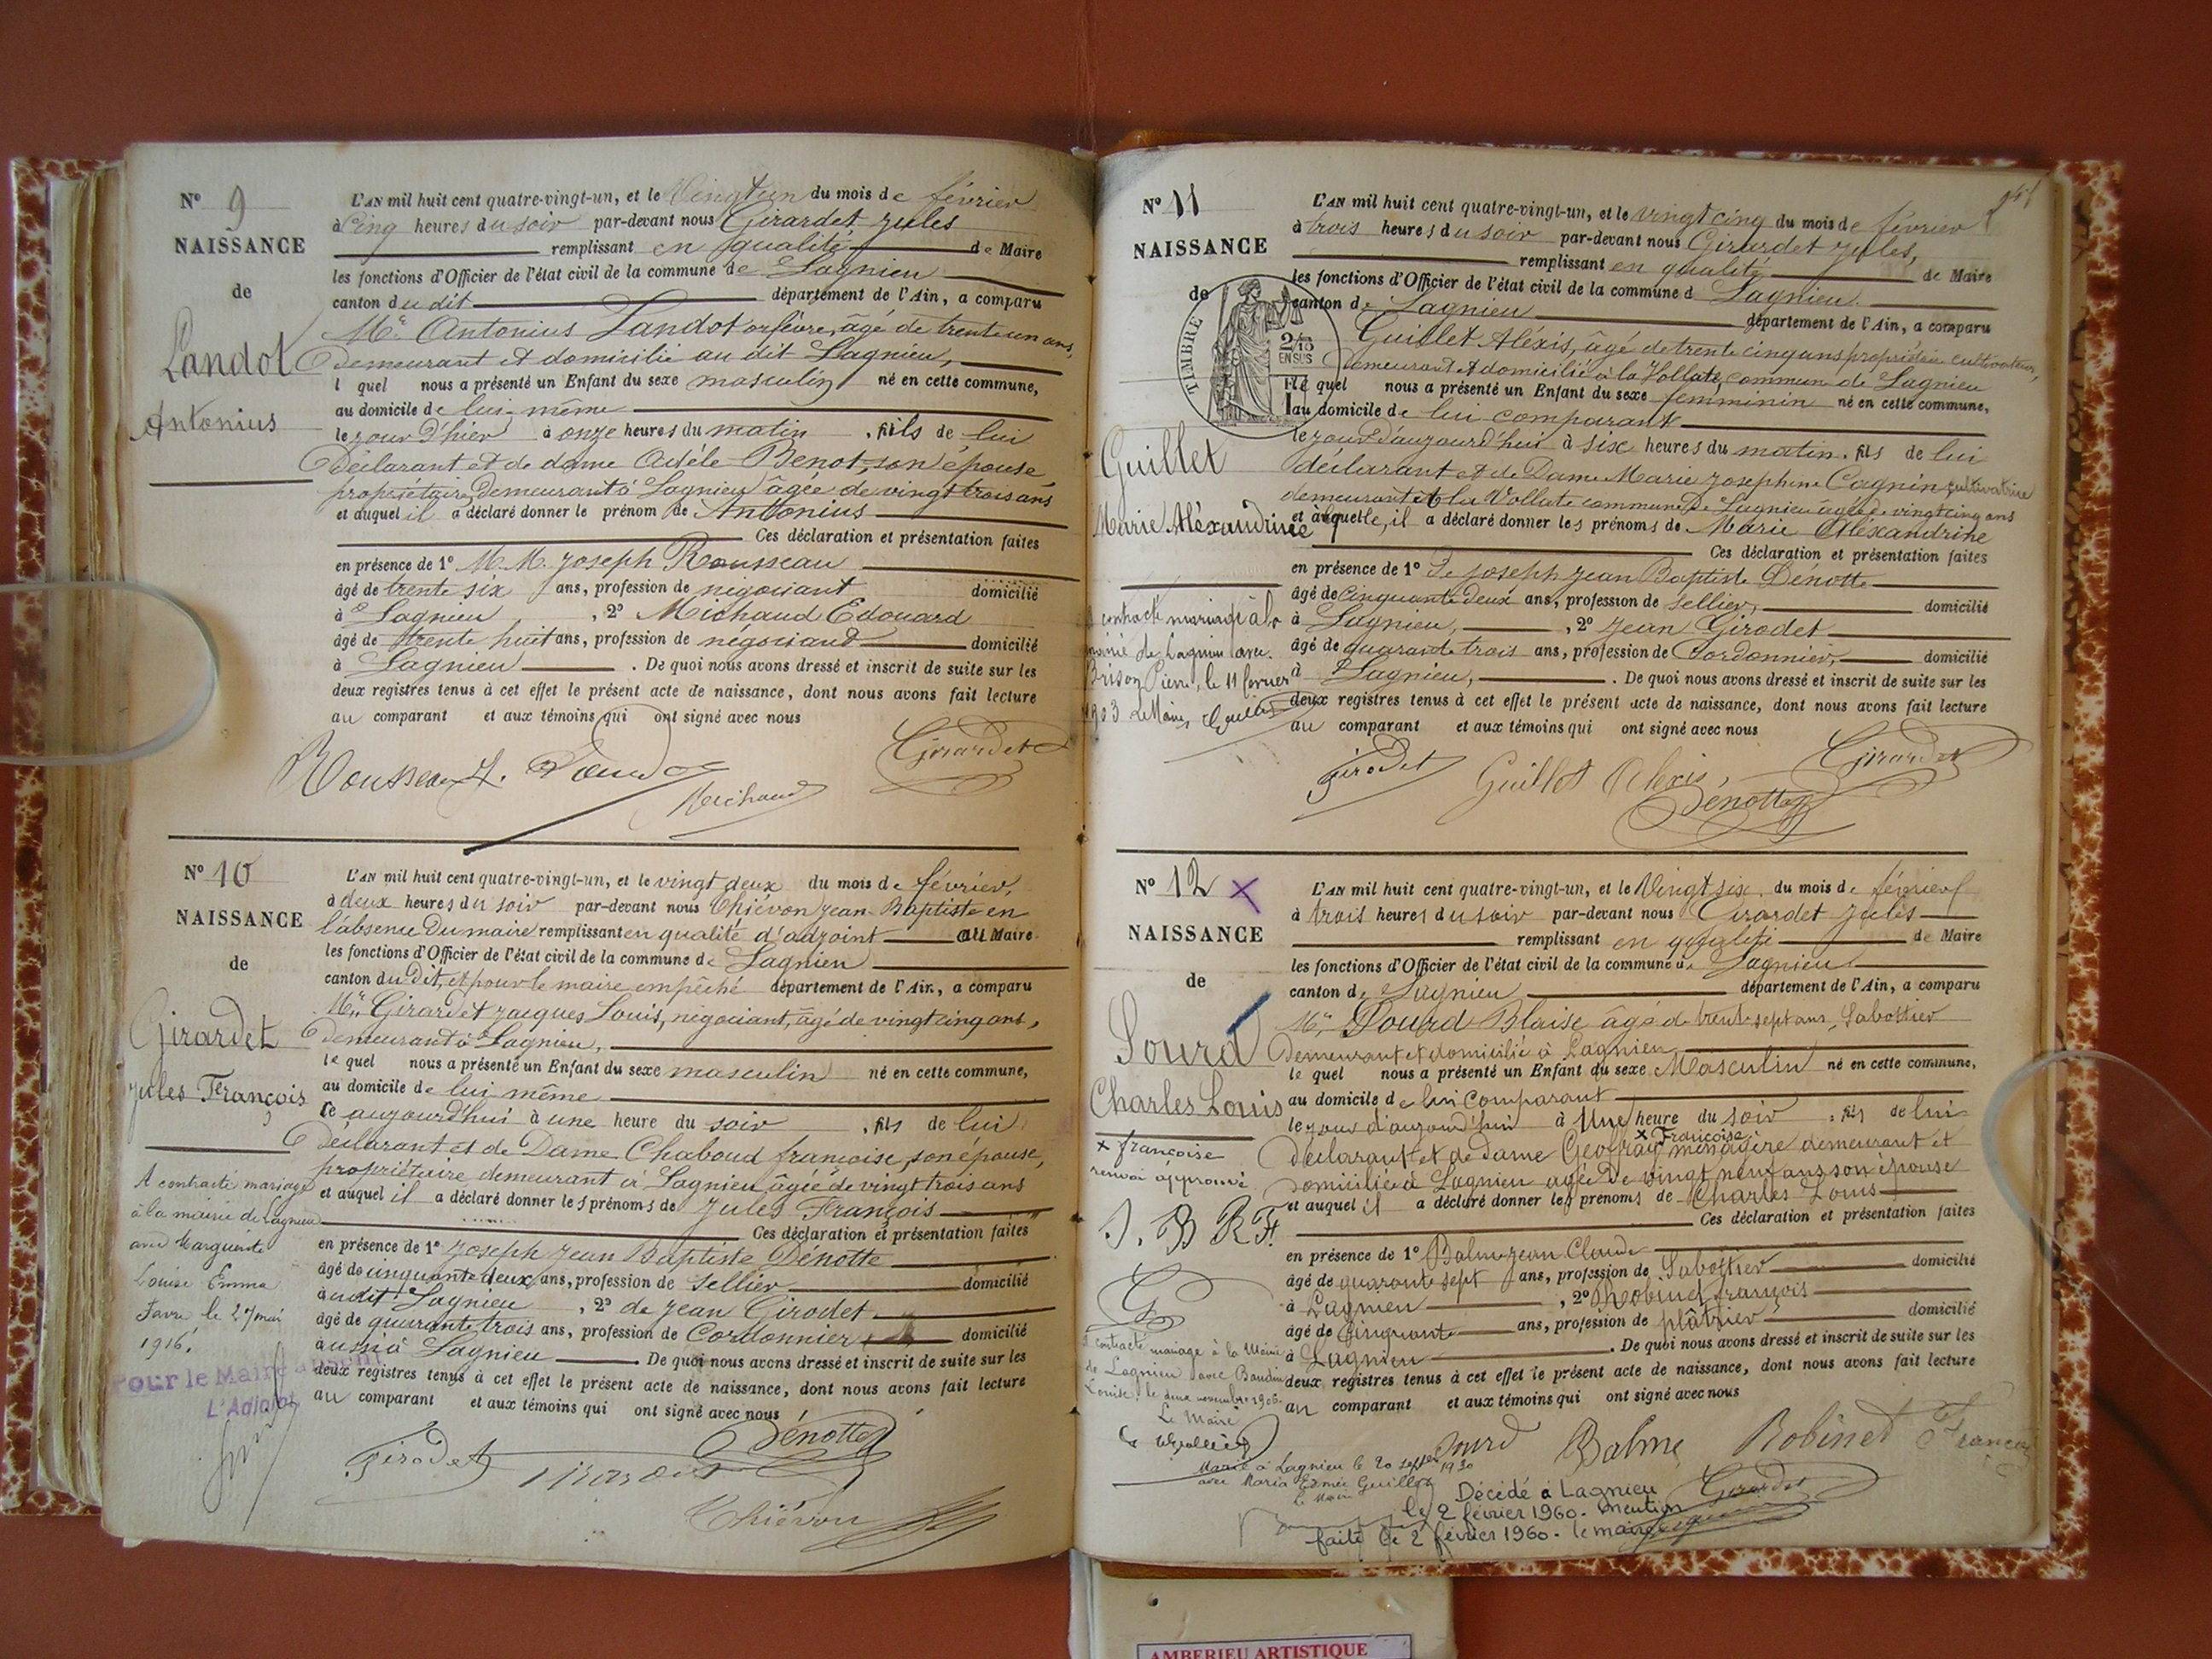 N° 9
NAISSANCE
de
Landot
Antonius
L'AN mil huit cent quatre-vingt-un, et le Vingt un du mois de février
à Cinq heures du soir par-devant nous Girardet Jules
remplissant en qualité de Maire
les fonctions d'Officier de l'état civil de la commune de Lagnieu
canton du dit département de l'Ain, a comparu
Mr. Antonius Landot orfèvre, âgé de trente un ans,
demeurant et domicilié au dit Lagnieu,
l quel nous a présenté un Enfant du sexe masculin né en cette commune,
au domicile de lui-même
le jour d'hier à onze heures du matin, fils de lui
déclarant et de dame Adèle Benot, son épouse,
propriétaire, demeurant à Lagnieu âgée de vingt trois ans
et auquel il a déclaré donner le prénom de Antonius
Ces déclaration et présentation faites
en présence de 1° M. M. Joseph Rousseau
âgé de trente six ans, profession de négociant domicilié
à Lagnieu, 2° Michaud Edouard
âgé de trente huit ans, profession de négociant domicilié
à Lagnieu. De quoi nous avons dressé et inscrit de suite sur les
deux registres tenus à cet effet le présent acte de naissance, dont nous avons fait lecture
au comparant et aux témoins qui ont signé avec nous
Rousseau J. Landot Michaud Girardet
N° 10
NAISSANCE
de
Girardet
Jules François
A contracté mariage
à la mairie de Lagnieu
avec Marguerite
Louise Emma
Favre le 27 mai
1916.
Pour le Maire absent
L'Adjoint
L'AN mil huit cent quatre-vingt-un, et le vingt deux du mois de février,
à deux heures du soir par-devant nous Thiévon Jean-Baptiste en
l'absence du maire remplissant en qualité d'adjoint au Maire
les fonctions d'Officier de l'état civil de la commune de Lagnieu
canton du Dit, et pour le maire empêché département de l'Ain, a comparu
Mr. Girardet Jacques Louis, négociant, âgé de vingt cinq ans,
demeurant à Lagnieu,
le quel nous a présenté un Enfant du sexe masculin né en cette commune,
au domicile de lui même
ce aujourd'hui à une heure du soir, fils de lui
déclarant et de Dame Chaboud françoise, son épouse,
propriétaire demeurant à Lagnieu âgée de vingt trois ans
et auquel il a déclaré donner les prénoms de Jules François
Ces déclaration et présentation faites
en présence de 1° Joseph Jean Baptiste Dénotte
âgé de cinquante deux ans, profession de Sellier domicilié
au dit Lagnieu, 2° de Jean Girodet
âgé de quarante trois ans, profession de Cordonnier domicilié
aussi à Lagnieu. De quoi nous avons dressé et inscrit de suite sur les
deux registres tenus à cet effet le présent acte de naissance, dont nous avons fait lecture
au comparant et aux témoins qui ont signé avec nous
Girodet Girardet Dénotte
Thiévon
N° 11
NAISSANCE
de
TIMBRE
2/10
EN SUS
Guillet
Marie Aléxandrine
A contracté mariage à la
mairie de Lagnieu avec
Brison Pierre, le 11 février
1903 Le Maire,
L'AN mil huit cent quatre-vingt-un, et le vingt cinq du mois de février
à trois heures du soir par-devant nous Girardet Jules,
remplissant en qualité de Maire
les fonctions d'Officier de l'état civil de la commune d Lagnieu
canton de Lagnieu département de l'Ain, a comparu
Guillet Aléxis, âgé de trente cinq ans propriétaire cultivateur,
demeurant et domicilié à la Vollate, commune de Lagnieu
le quel nous a présenté un Enfant du sexe femminin né en cette commune,
au domicile de lui comparant
le jour d'aujourd'hui à six heures du matin, fils de lui
déclarant et de Dame Marie Josephine Cagnin cultivatrice
demeurant à la Vollate commune de Lagnieu âgée de vingt cinq ans
et à laquelle, il a déclaré donner les prénoms de Marie Aléxandrine
Ces déclaration et présentation faites
en présence de 1° de Joseph Jean Baptiste Dénotte
âgé de Cinquante deux ans, profession de Sellier, domicilié
à Lagnieu, 2° Jean Girodet
âgé de quarante trois ans, profession de Cordonnier, domicilié
à Lagnieu,. De quoi nous avons dressé et inscrit de suite sur les
deux registres tenus à cet effet le présent acte de naissance, dont nous avons fait lecture
au comparant et aux témoins qui ont signé avec nous
Girodet Guillet Alexis, Dénotte Girardet
N° 12 x
NAISSANCE
de
Sourd
Charles Louis
x françoise
renvoi approuvé
S. B R F.
G
A contracté mariage à la Mairie
de Lagnieu avec Baudin
Louise le deux novembre 1906.
Le Maire
L'AN mil huit cent quatre-vingt-un, et le Vingt six du mois de février
à trois heures du soir par-devant nous Girardet Jules
remplissant en qualité de Maire
les fonctions d'Officier de l'état civil de la commune de Lagnieu
canton de Lagnieu département de l'Ain, a comparu
Mr. Sourd Blaise âgé de trente sept ans, Sabottier
demeurant et domicilié à Lagnieu
le quel nous a présenté un Enfant du sexe Masculin né en cette commune,
au domicile de lui Comparant
le jour d'aujourd'hui à Une heure du soir, fils de lui
x Françoise
déclarant et de dame Geoffray ménagère demeurant et
domiciliée à Lagnieu agée de vingt neuf ans son épouse
et auquel il a déclaré donner les prénoms de Charles Louis
Ces déclaration et présentation faites
en présence de 1° Balme Jean Claude
âgé de quarante sept ans, profession de Sabottier domicilié
à Lagnieu, 2° Robinet françois
âgé de Cinquante ans, profession de plâtrier domicilié
à Lagnieu. De quoi nous avons dressé et inscrit de suite sur les
deux registres tenus à cet effet le présent acte de naissance, dont nous avons fait lecture
au comparant et aux témoins qui ont signé avec nous
Sourd Balme Robinet François
Girardet
Marié à Lagnieu le 20 septbre 1930
avec Maria Esmée Guillot
le Maire
Décédé à Lagnieu
le 2 février 1960. Mention
faite le 2 février 1960. le maire
AMBERIEU ARTISTIQUE